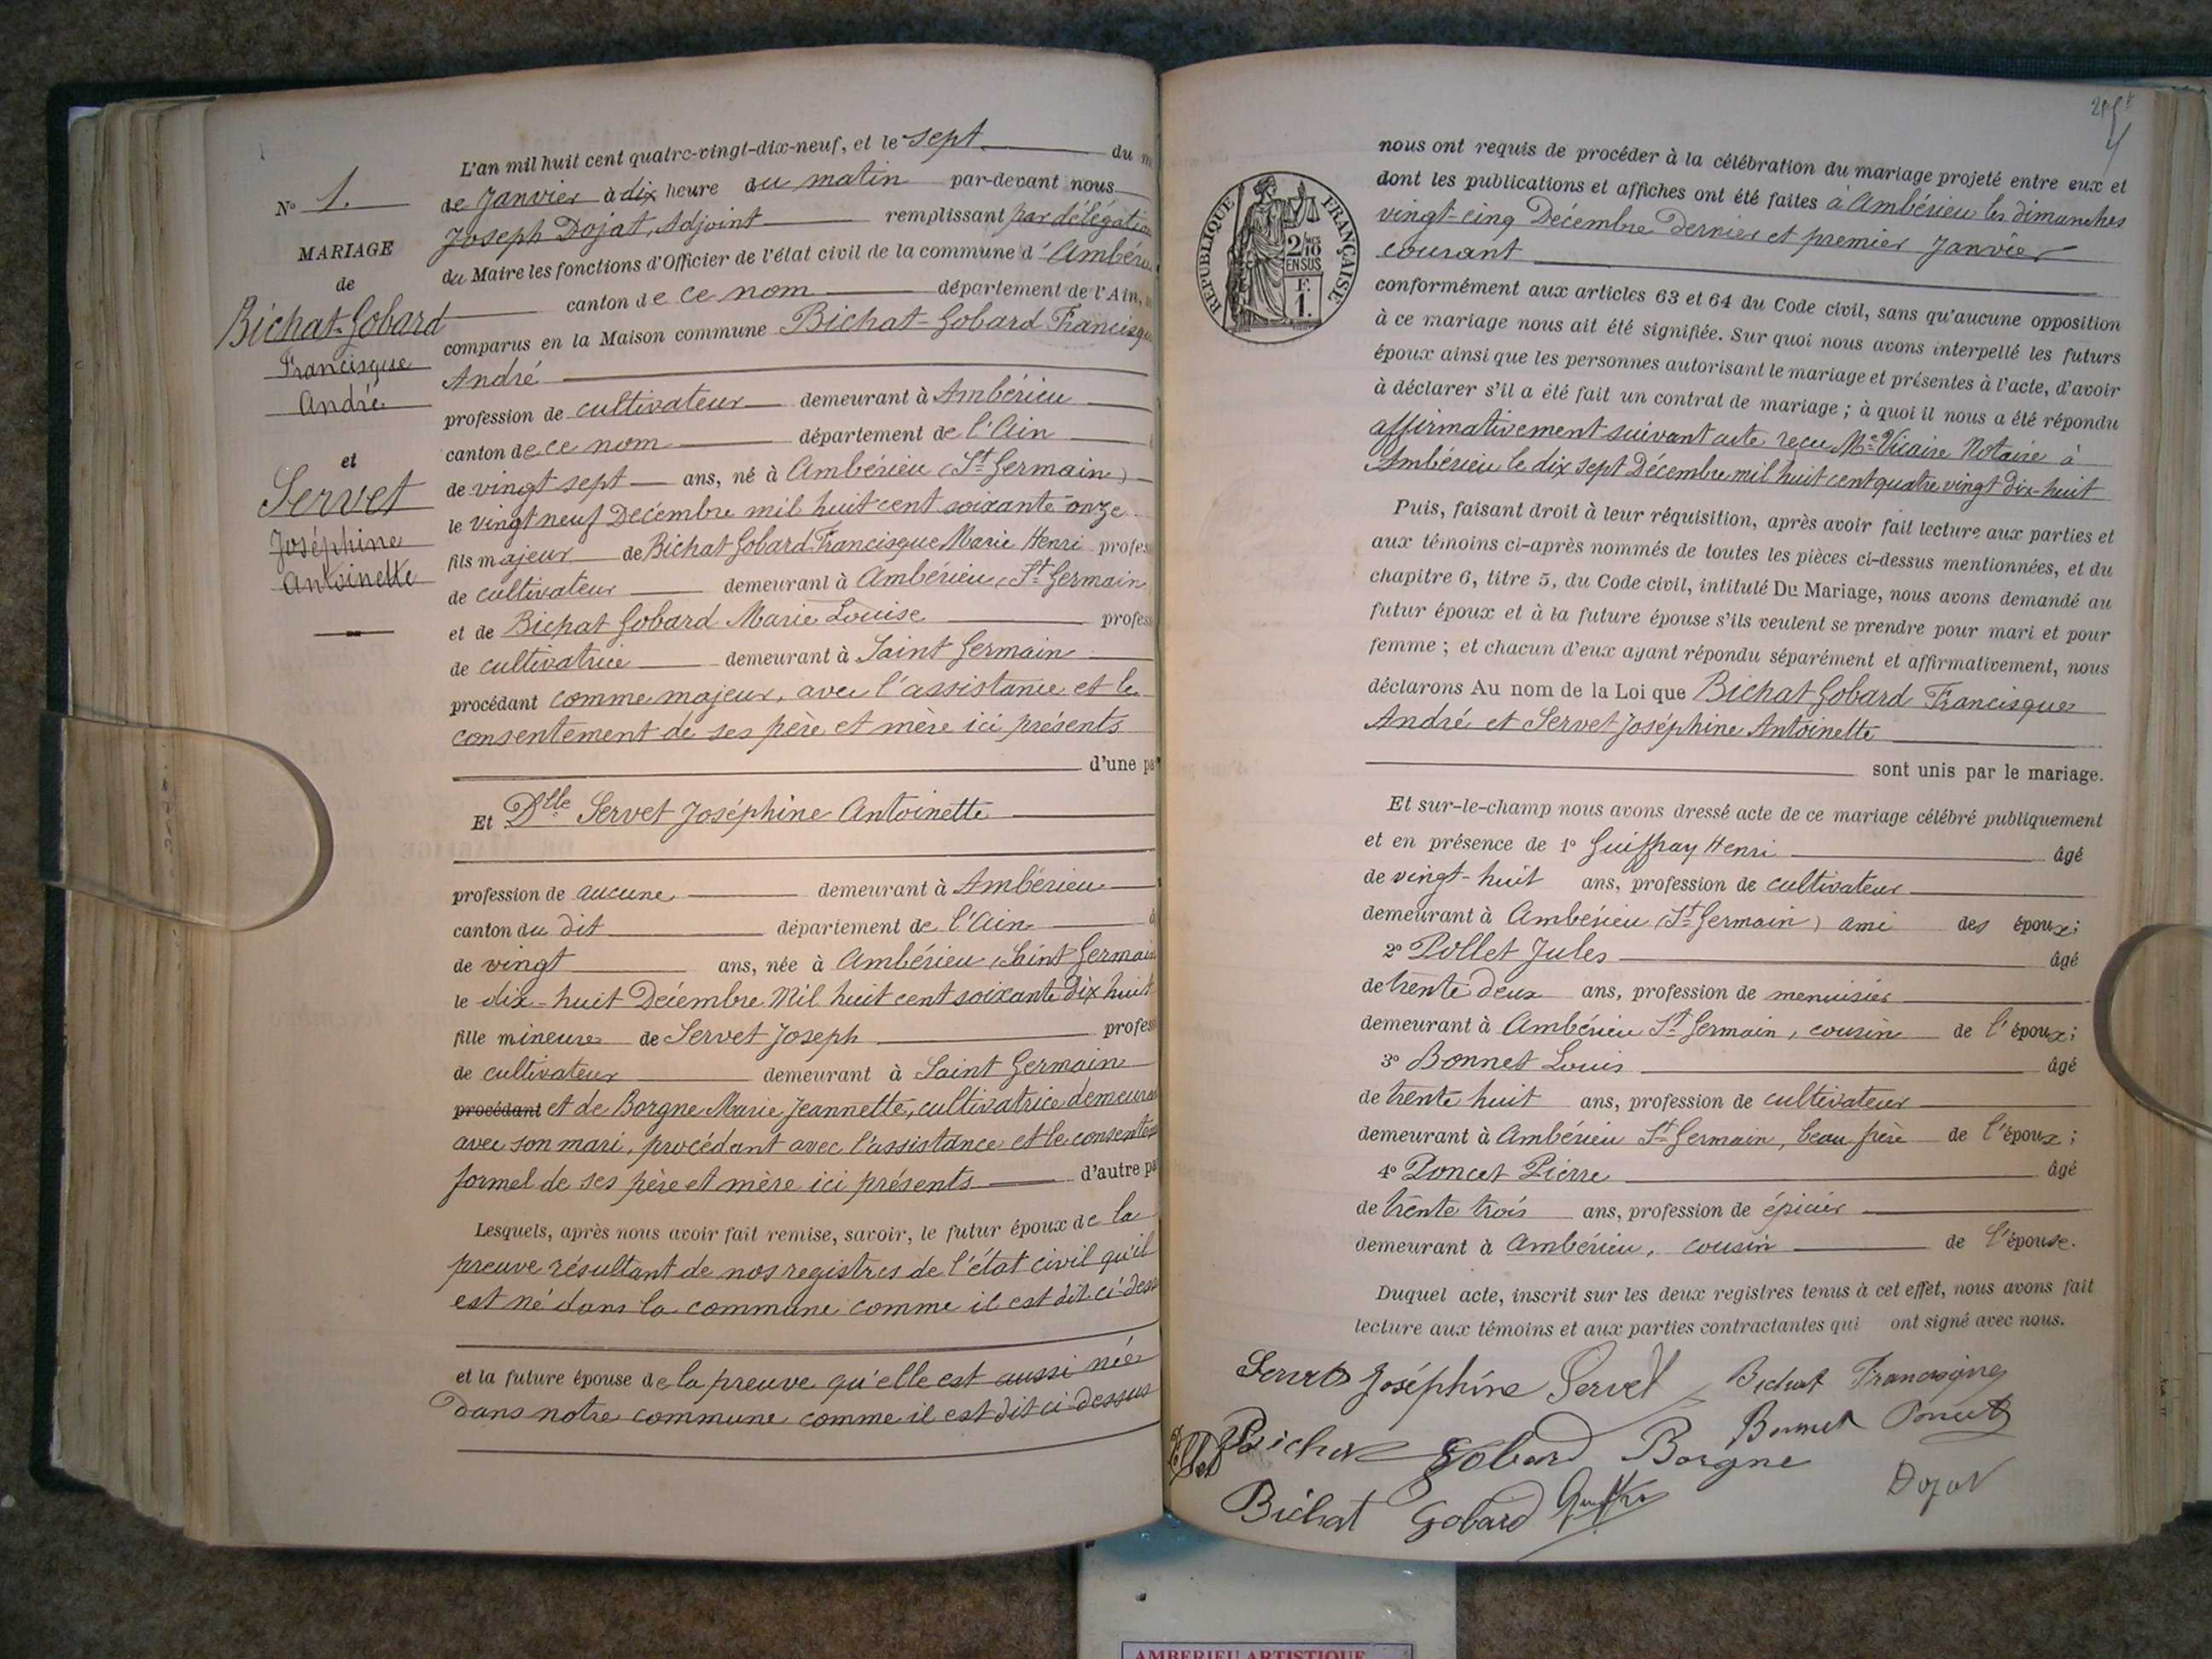 N° 1.
MARIAGE
de
Bichat-Gobard
Francisque
André
et
Servet
Joséphine
Antoinette
L'an mil huit cent quatre-vingt-dix-neuf, et le sept du
de Janvier à dix heure du matin par-devant nous
Joseph Dojat, Adjoint remplissant par délégation
du Maire les fonctions d'Officier de l'état civil de la commune d'Ambérieu
canton de ce nom département de l'Ain,
comparus en la Maison commune Bichat-Gobard Francisque
André
profession de cultivateur demeurant à Ambérieu
canton de ce nom département de l'Ain
de vingt sept ans, né à Ambérieu (St Germain)
le vingt neuf Décembre mil huit cent soixante onze
fils majeur de Bichat Gobard Francisque Marie Henri profes
de cultivateur demeurant à Ambérieu, St Germain
et de Bichat Gobard Marie Louise profes
de cultivatrice demeurant à Saint Germain
procédant comme majeur, avec l'assistance et le
consentement de ses père et mère ici présents
d'une pa
Et Dlle Servet Joséphine Antoinette
profession de aucune demeurant à Ambérieu
canton du dit département de l'Ain
de vingt ans, née à Ambérieu, Saint Germain
le dix-huit Décembre Mil huit cent soixante dix huit
fille mineure de Servet Joseph profes
de cultivateur demeurant à Saint Germain
procédant et de Borgne Marie Jeannette, cultivatrice demeurant
avec son mari, procédant avec l'assistance et le consentem
formel de ses père et mère ici présents d'autre pa
Lesquels, après nous avoir fait remise, savoir, le futur époux de la
preuve résultant de nos registres de l'état civil qu'il
est né dans la commune comme il est dit ci-dess
et la future épouse de la preuve qu'elle est aussi née
dans notre commune comme il est dit ci-dessus
RÉPUBLIQUE FRANÇAISE
2/10
EN SUS
F.
1.
nous ont requis de procéder à la célébration du mariage projeté entre eux et
dont les publications et affiches ont été faites à Ambérieu les dimanches
vingt-cinq Décembre dernier et premier Janvier
courant
conformément aux articles 63 et 64 du Code civil, sans qu'aucune opposition
à ce mariage nous ait été signifiée. Sur quoi nous avons interpellé les futurs
époux ainsi que les personnes autorisant le mariage et présentes à l'acte, d'avoir
à déclarer s'il a été fait un contrat de mariage ; à quoi il nous a été répondu
affirmativement suivant acte reçu Me Vicaire Notaire à
Ambérieu le dix sept Décembre mil huit cent quatre vingt dix-huit
Puis, faisant droit à leur réquisition, après avoir fait lecture aux parties et
aux témoins ci-après nommés de toutes les pièces ci-dessus mentionnées, et du
chapitre 6, titre 5, du Code civil, intitulé Du Mariage, nous avons demandé au
futur époux et à la future épouse s'ils veulent se prendre pour mari et pour
femme ; et chacun d'eux ayant répondu séparément et affirmativement, nous
déclarons Au nom de la Loi que Bichat Gobard Francisque
André et Servet Joséphine Antoinette
sont unis par le mariage.
Et sur-le-champ nous avons dressé acte de ce mariage célébré publiquement
et en présence de 1° Guiffray Henri âgé
de vingt-huit ans, profession de cultivateur
demeurant à Ambérieu (St Germain) ami des époux;
2° Pollet Jules âgé
de trente deux ans, profession de menuisier
demeurant à Ambérieu St Germain, cousin de l'époux;
3° Bonnet Louis âgé
de trente huit ans, profession de cultivateur
demeurant à Ambérieu St Germain, beau frère de l'époux;
4° Poncet Pierre âgé
de trente trois ans, profession de épicier
demeurant à Ambérieu, cousin de l'épouse.
Duquel acte, inscrit sur les deux registres tenus à cet effet, nous avons fait
lecture aux témoins et aux parties contractantes qui ont signé avec nous.
Servet Joséphine Servet Bichat Francisque
Bichat Gobard Borgne Bonnet Poncet
Bichat Gobard Dojat
AMBERIEU ARTISTIQUE